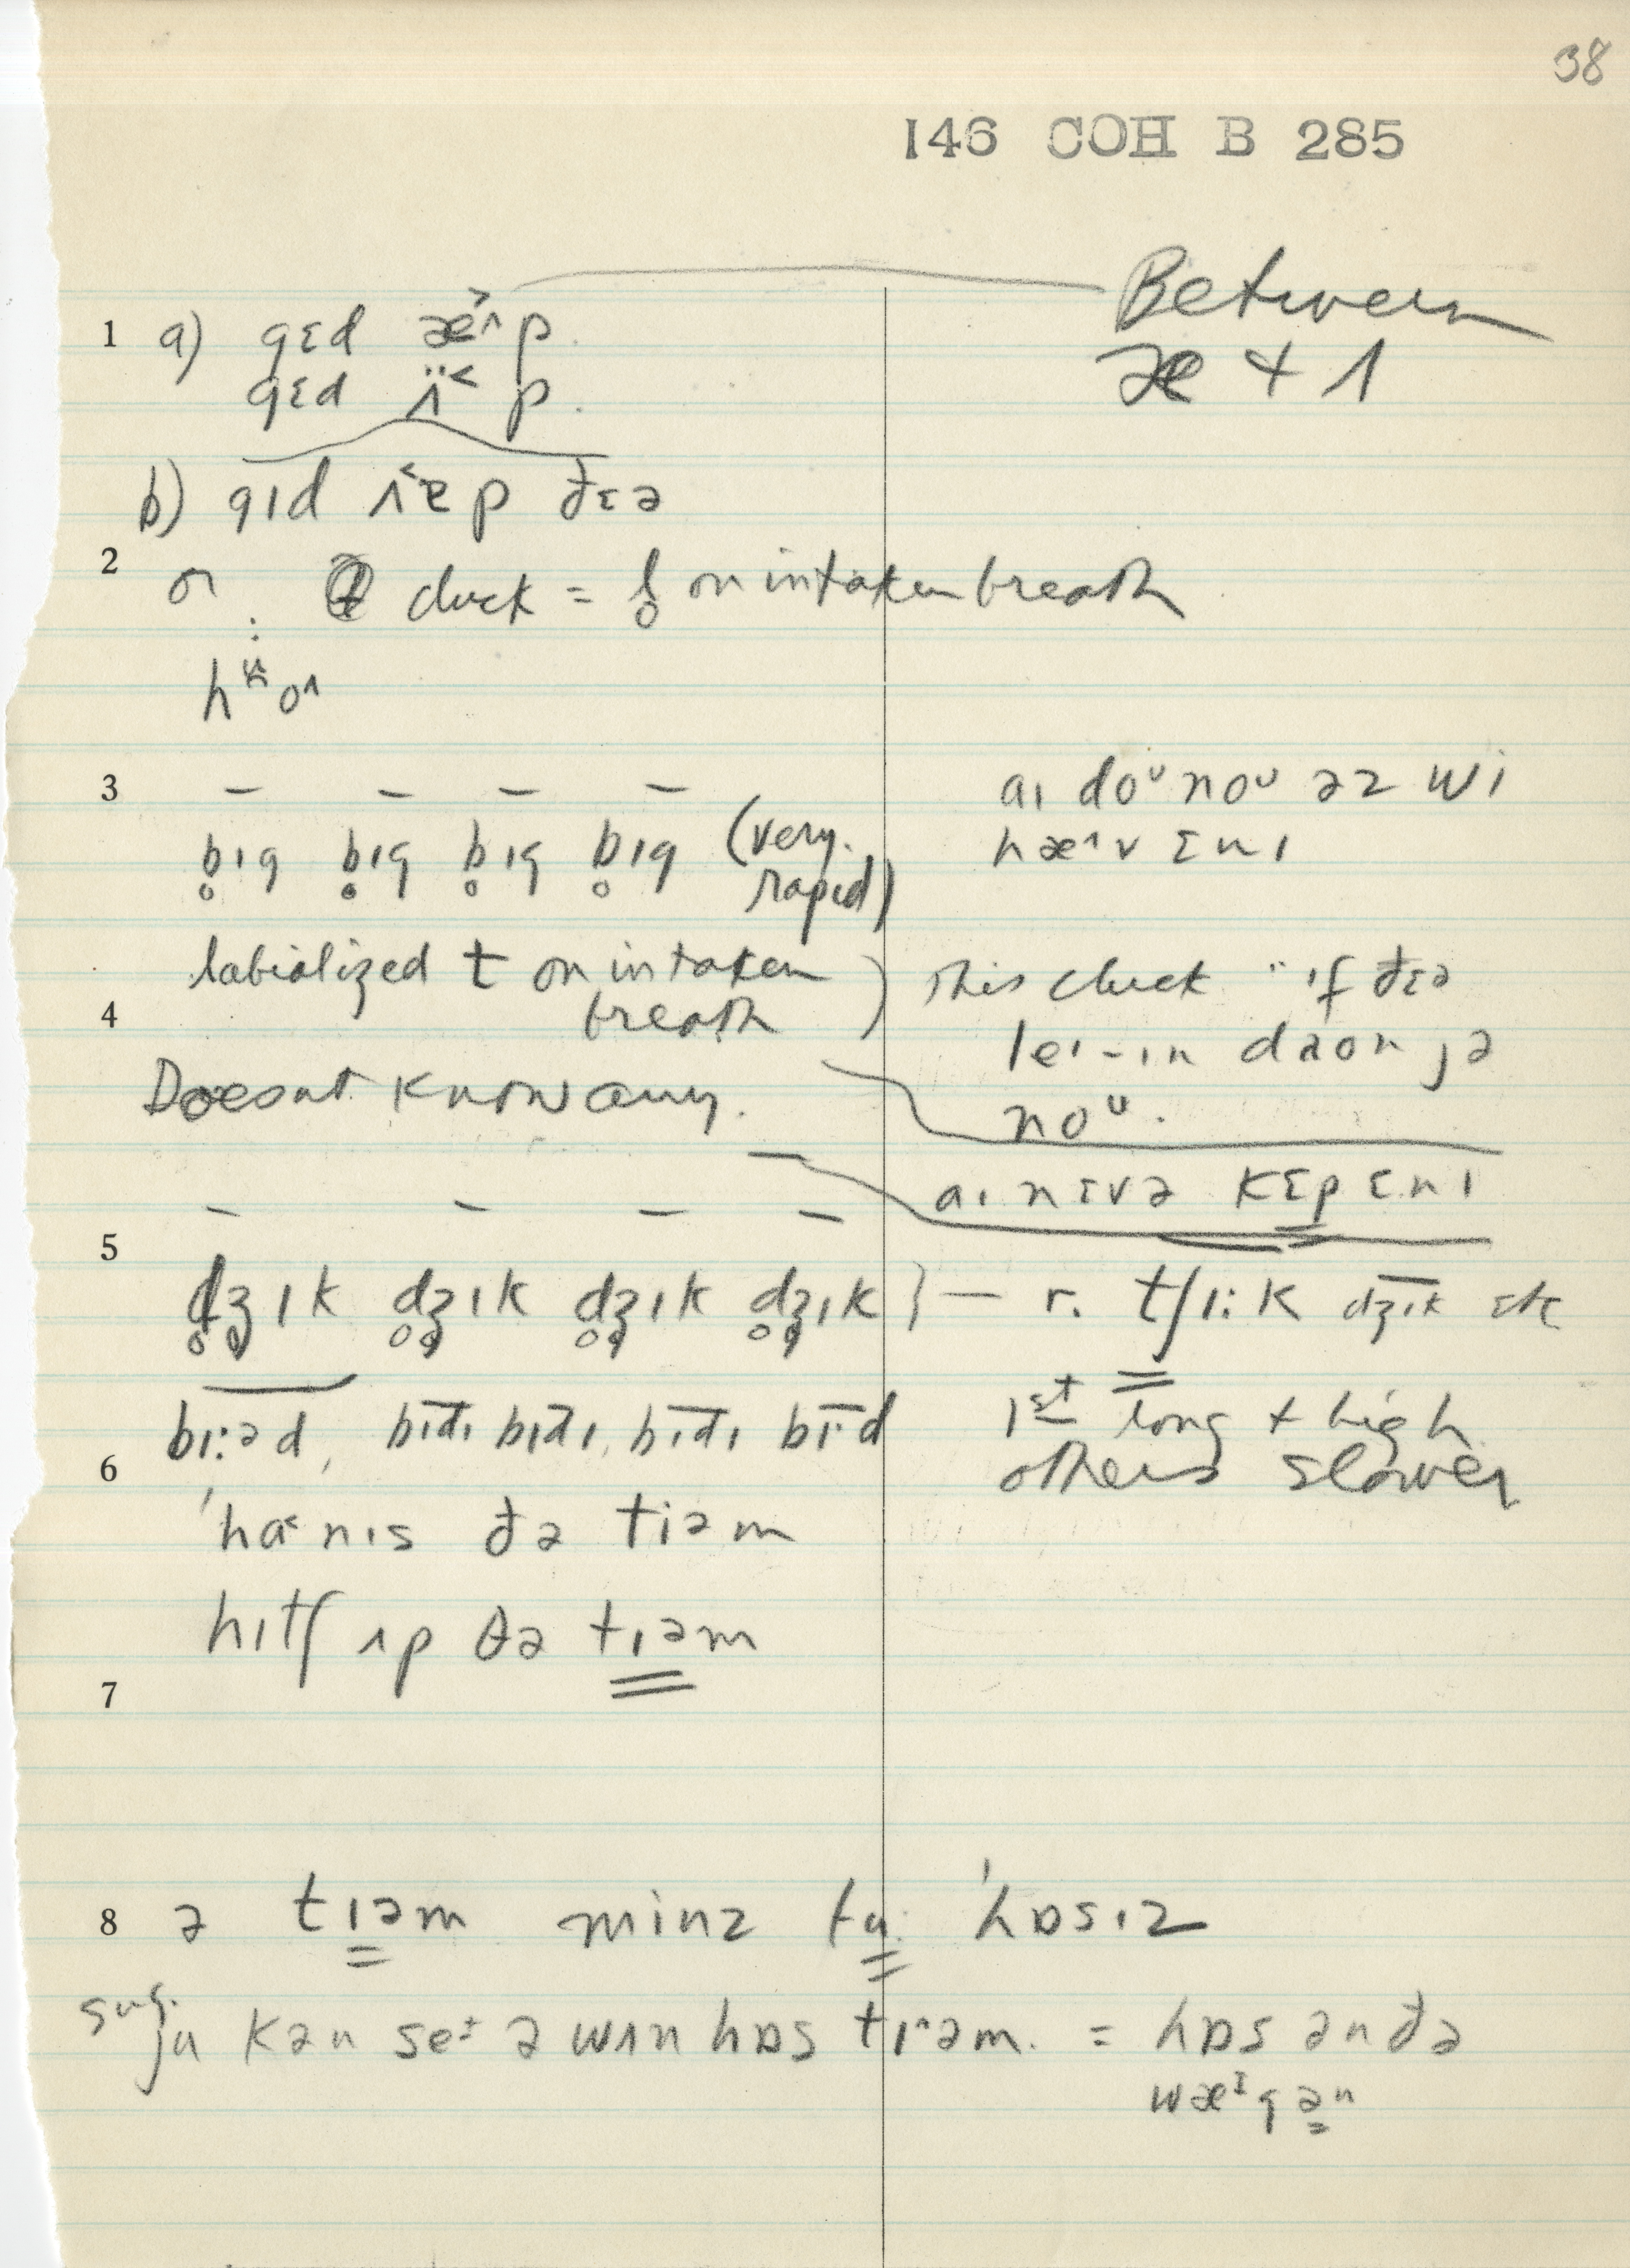 38
146 COH B 285
1 a) gɛd æ^˃ʌp.
gɛd ʌ̈^˂p.
Between
æ + ʌ
b) gɪd ʌ^˂ɐp ðɛə
2 or cluck = l̥ on intaken breath
3
b̥ɪg b̥ɪg b̥ɪg b̥ɪg (very rapid)
aɪ doᵘ noᵘ əz wi
hæ^ʌv ɛnɪ
4 labialized t on intaken
breath)
This cluck if ðɛə
leɪ-ɪn daon jə
noᵘ.
Doesnt know any.
aɪ nɛvə kɛp ɛnɪ
5
d̥ʒ̊ɪk d̥ʒ̊ɪk d̥ʒ̊ɪk d̥ʒ̊ɪk } — r. tʃɪːk dʒɪk etc
1st long + high
others slower
6 bɪːəd, bɪdɪ bɪdɪ, bɪdɪ bɪˑd
ˈha^˂nɪs ðə tiəm
hɪtʃ ʌp ðə tɪəm
7
8 ə tɪəm minz tu: ˈhɒsɪz
sug.
ju kən se^ɪ ə wʌn hɒs tɪˑəm. = hɒs ən ðə
wæᶦgən